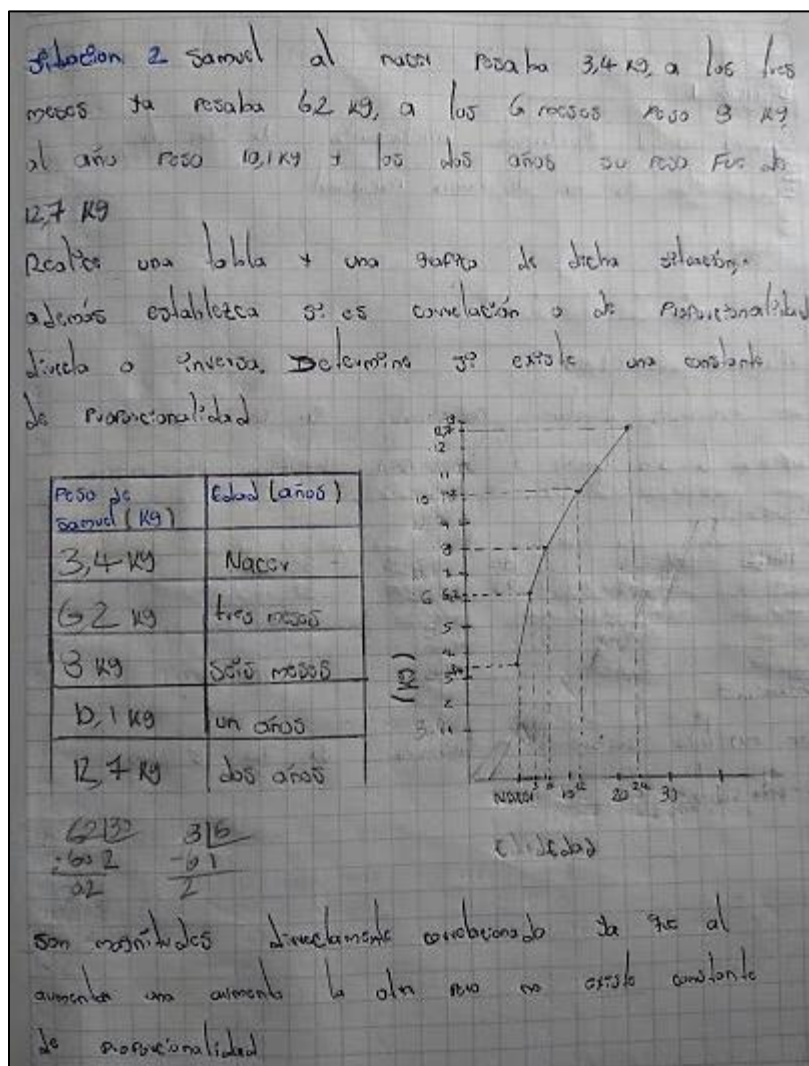 Situacion 2 Samuel al nacer pesaba 3,4 kg, a los tres
meses ya pesaba 6,2 kg, a los 6 meses peso 8 kg,
al año peso 10,1 kg y los dos años su peso fue de
12,7 kg
Realice una tabla y una grafica de dicha situación,
además establezca si es correlación o de Proporcionalidad
directa o inversa. Determine si existe una constante
de proporcionalidad
Peso de Samuel (Kg) Edad (años)
3,4 kg Nacer
6,2 kg tres meses
8 kg seis meses
10,1 kg un años
12,7 kg dos años
12,7
12
11
10
9
8
7
6 6,2
5
4
3
2
Nacer 3 6 10 12 20 24 30
son magnitudes directamente correlacionado ya que al
aumentar una aumenta la otra pero no existe constante
de proporcionalidad